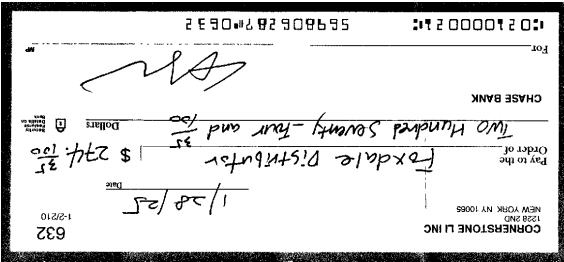 CORNERSTONE LI INC
1228 2ND
NEW YORK NY 10065
632
1-2/210
1/28/25
Date
Pay to the Order of Foxdale Distributor $ 274. 35/100
Two Hundred Seventy-Four and 35/100 Dollars
Security Features Details on Back
CHASE BANK
For
MP
⑆021000021⑆